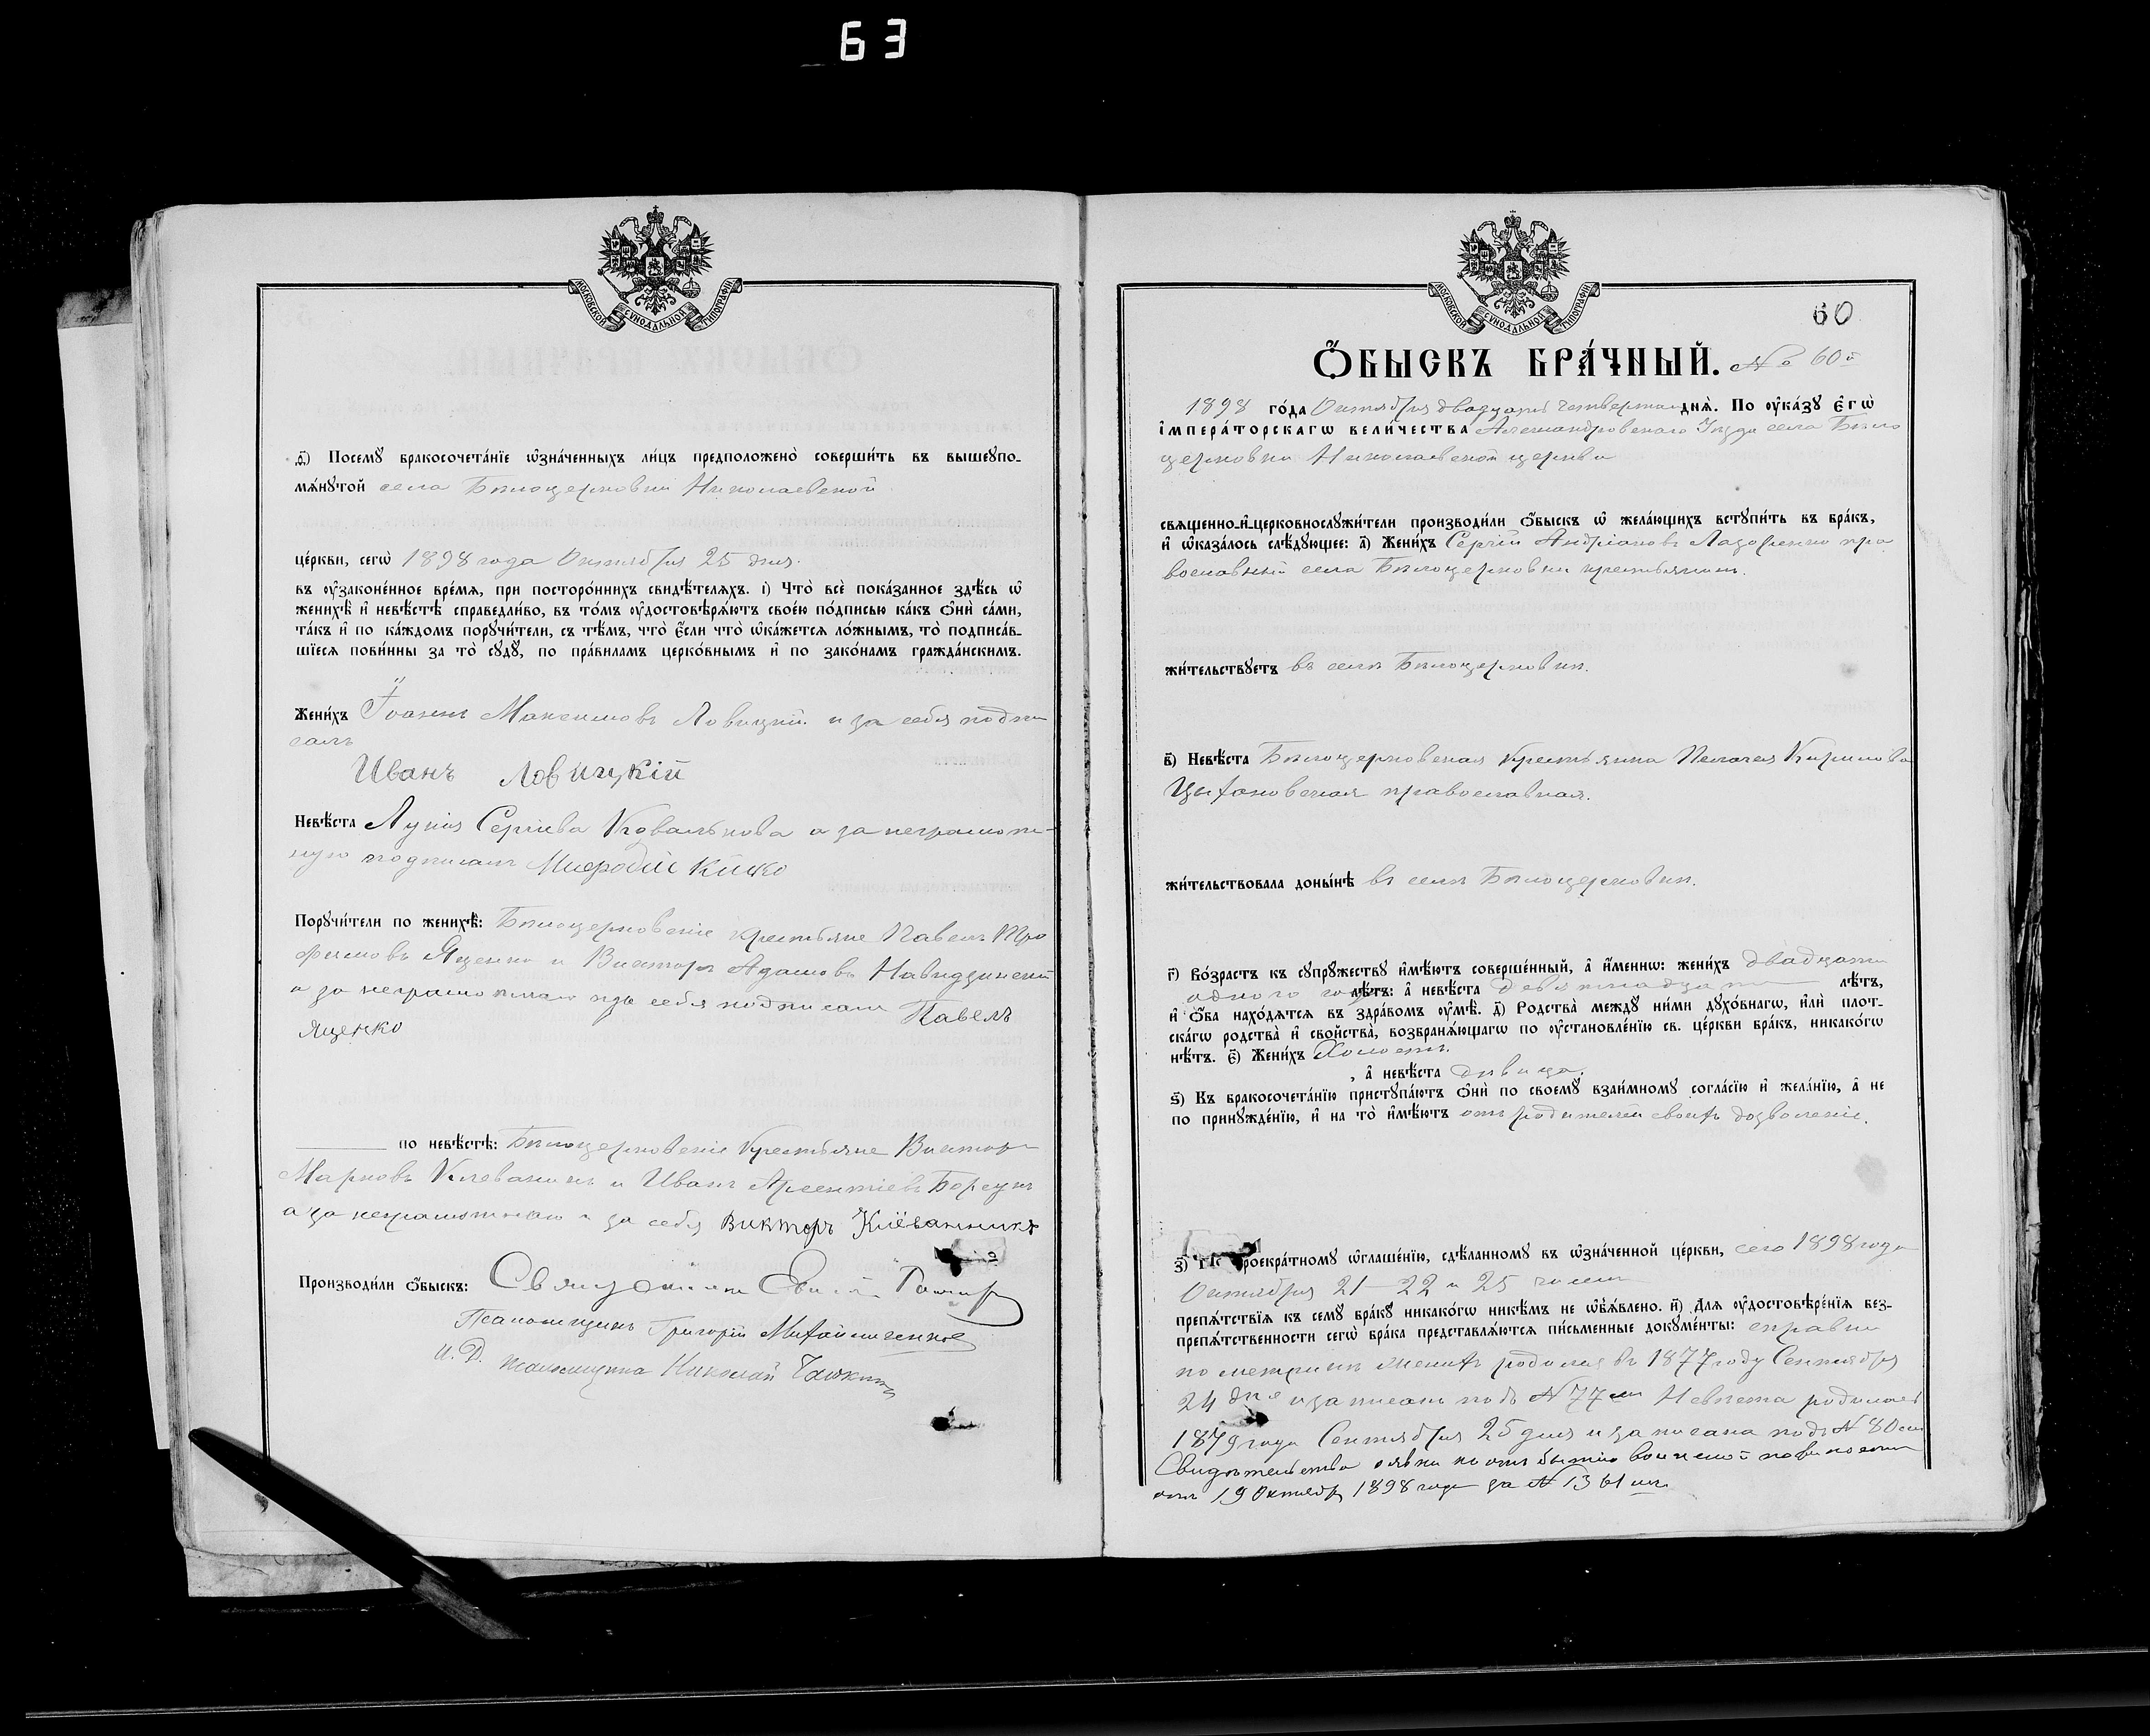 63
МОСКОВСКОЙ СУНОДАЛЬНОЙ ТИПОГРАФІИ
д҃і) Посемꙋ бракосочета́нїе ѡ҆зна́ченныхъ ли́цъ предположено̀ соверши́ть въ вышеꙋпо-
мѧ́нꙋтой села Бѣлоцерковки Николаевской
це́ркви, сегѡ̀ 1898 года Октября 25 дня.
въ ᲂу҆зако́ненное вре́мѧ, при посторо́ннихъ свидѣ́телѧхъ. і) Что̀ всѐ пока́занное здѣ́сь ѡ҆
женихѣ̀ и҆ невѣ́стѣ справедли́во, въ то́мъ ᲂу҆достовѣрѧ́ютъ свое́ю по́дписью ка́къ ѻ҆нѝ са́ми,
та́къ и҆ по ка́ждомъ порꙋчи́тели, съ тѣ́мъ, что̀ є҆́сли что̀ ѡ҆ка́жетсѧ ло́жнымъ, то̀ подписа́в-
шїесѧ пови́нны за то̀ сꙋдꙋ̀, по пра́виламъ церко́внымъ и҆ по зако́намъ гражда́нскимъ.
Жени́хъ Іоаннъ Максимовъ Ловицкій и за себя подпи
салъ
Иванъ Ловицкій
Невѣ́ста Лукія Сергіева Ковалькова а за неграмот-
ную подписалъ Кичко
Порꙋчи́тели по женихѣ̀: Бѣлоцерковскіе крестьяне Павелъ Тро
фимовъ Яценко и Викторъ Адамовъ
а за неграмотнаго и за себя подписалъ Павелъ
Яценко
по невѣ́стѣ: Бѣлоцерковскіе крестьяне Викторъ
Марковъ Клеванникъ и Иванъ Арсентіевъ
а за неграмотнаго и за себя Викторъ
Производи́ли ѻ҆́быскъ: Священникъ
Псаломщикъ Григорій Михайличенко
И. Д. псаломщика Николай
МОСКОВСКОЙ СУНОДАЛЬНОЙ ТИПОГРАФІИ
60
Ѻ҆́БЫСКЪ БРА́ЧНЫЙ. № 60й
1898 го́да Октября двадцать четвертаго днѧ̀. По ᲂу҆ка́зꙋ є҆гѡ̀
і҆мпера́торскагѡ вели́чества Александровскаго Уѣзда села Бѣло
церковки Николаевской церкви
свѧщенно-и҆-церковнослꙋжи́тели производи́ли ѻ҆́быскъ ѡ҆ жела́ющихъ встꙋпи́ть въ бра́къ,
и҆ ѡ҆каза́лось слѣ́дꙋющее: а҃) Жени́хъ Сергій Андріановъ Лазоренко пра
вославный села Бѣлоцерковки крестьянинъ.
жи́тельствꙋетъ въ селѣ Бѣлоцерковкѣ.
в҃) Невѣ́ста Бѣлоцерковская крестьянка Пелагея Кирилова
Цыхановская православная.
жи́тельствовала доны́нѣ въ селѣ Бѣлоцерковкѣ.
г҃) Во́зрастъ къ сꙋпрꙋ́жествꙋ и҆мѣ́ютъ соверше́нный, а҆ и҆́меннѡ: жени́хъ двадцати
одного года лѣ́тъ: а҆ невѣ́ста девятнадцати лѣ́тъ,
и҆ ѻ҆́ба нахо́дѧтсѧ въ здра́вомъ ᲂу҆мѣ̀. д҃) Родства̀ междꙋ̀ ни́ми дꙋхо́внагѡ, и҆лѝ плот-
ска́гѡ родства̀ и҆ сво́йства̀, возбранѧ́ющагѡ по ᲂу҆становле́нїю св. це́ркви бра́къ, никако́гѡ
нѣ́тъ. є҃) Жени́хъ Холостъ.
, а҆ невѣ́ста дѣвица.
ѕ҃) Къ бракосочета́нїю пристꙋпа́ютъ ѻ҆нѝ по своемꙋ̀ взаи́мномꙋ согла́сїю и҆ жела́нїю, а҆ не
по принꙋжде́нїю, и҆ на то̀ и҆мѣ́ютъ отъ родителей своихъ дозволеніе.
з҃) роекра́тномꙋ ѡ҆глаше́нїю, сдѣ́ланномꙋ въ ѡ҆зна́ченной це́ркви, сего 1898 года
Октября 21 — 22 и 25 числъ
препѧ́тствїѧ къ семꙋ̀ бра́кꙋ никако́гѡ никѣ́мъ не ѡ҆б̾ѧ́влено. и҃) Длѧ̀ ᲂу҆достовѣре́нїѧ без-
препѧ́тственности сегѡ̀ бра́ка представлѧ́ютсѧ пи́сьменные докꙋме́нты: справки
по метрикѣ женихъ родился въ 1877 году Сентября
24 дня и записанъ подъ № 77мъ Невѣста родилась
1879 года Сентября 25 дня и записана подъ № 80мъ
Свидѣтельство о явкѣ къ отбытію воинской повинности
отъ 19 Октября 1898 года за № 1361мъ